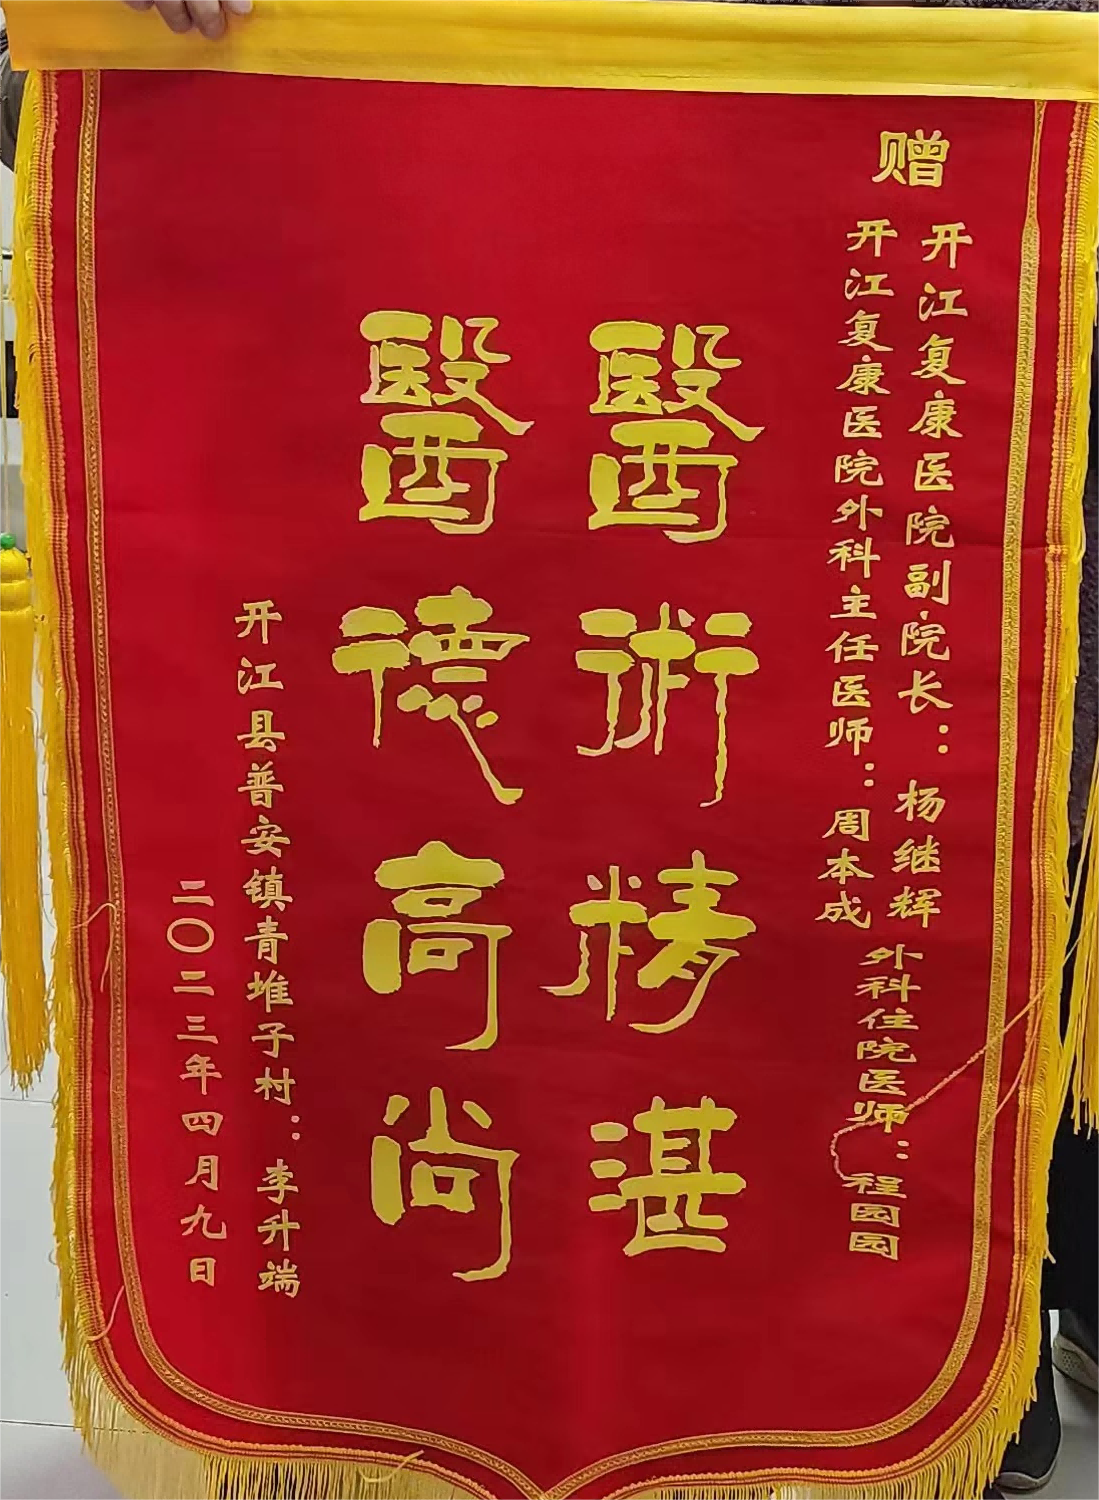 赠
开江复康医院副院长：杨继辉
开江复康医院外科主任医师：周本成
外科住院医师：程园园
醫術精湛
醫德高尚
开江县普安镇青堆子村：李升端
二〇二三年四月九日